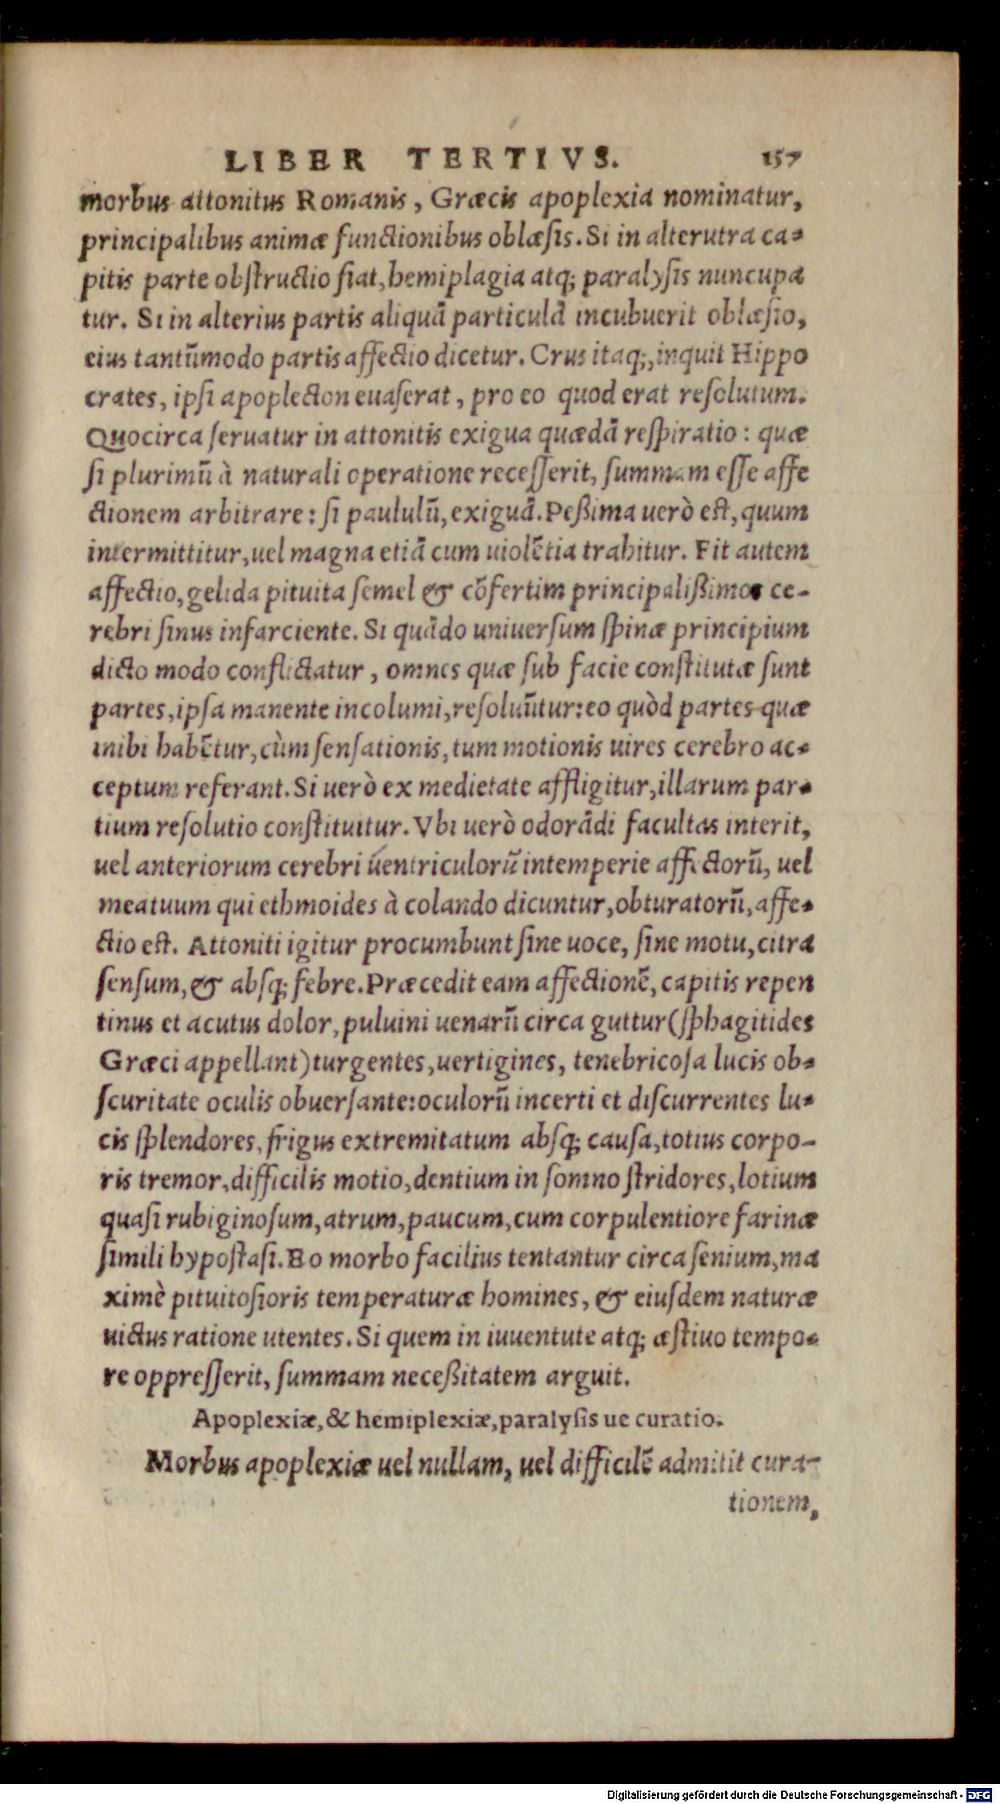 LIBER TERTIVS. 157
morbus attonitus Romanis, Græcis apoplexia nominatur,
principalibus animæ functionibus oblæsis. Si in alterutra ca-
pitis parte obstructio fiat, hemiplagia atq; paralysis nuncupa
tur. Si in alterius partis aliquã particulã incubuerit oblæsio,
eius tantũmodo partis affectio dicetur. Crus itaq;, inquit Hippo
crates, ipsi apoplecton euaserat, pro eo quod erat resolutum.
Quocirca seruatur in attonitis exigua quædã respiratio: quæ
si plurimũ à naturali operatione recesserit, summam esse affe
ctionem arbitrare: si paululũ, exiguã. Peßima uerò est, quum
intermittitur, uel magna etiã cum uiolẽtia trahitur. Fit autem
affectio, gelida pituita semel & cõfertim principalißimos ce-
rebri sinus infarciente. Si quãdo uniuersum spinæ principium
dicto modo conflictatur, omnes quæ sub facie constitutæ sunt
partes, ipsa manente incolumi, resoluũtur: eo quòd partes quæ
inibi habẽtur, cùm sensationis, tum motionis uires cerebro ac-
ceptum referant. Si uerò ex medietate affligitur, illarum par-
tium resolutio constituitur. Vbi uerò odorãdi facultas interit,
uel anteriorum cerebri uentriculorũ intemperie affectorũ, uel
meatuum qui ethmoides à colando dicuntur, obturatorũ, affe-
ctio est. Attoniti igitur procumbunt sine uoce, sine motu, citra
sensum, & absq; febre. Præcedit eam affectionẽ, capitis repen
tinus et acutus dolor, puluini uenarũ circa guttur (sphagitides
Græci appellant) turgentes, uertigines, tenebricosa lucis ob-
scuritate oculis obuersante: oculorũ incerti et discurrentes lu-
cis splendores, frigus extremitatum absq; causa, totius corpo-
ris tremor, difficilis motio, dentium in somno stridores, lotium
quasi rubiginosum, atrum, paucum, cum corpulentiore farinæ
simili hypostasi. Eo morbo facilius tentantur circa senium, ma
ximè pituitosioris temperaturæ homines, & eiusdem naturæ
uictus ratione utentes. Si quem in iuuentute atq; æstiuo tempo-
re oppresserit, summam neceßitatem arguit.
Apoplexiæ, & hemiplexiæ, paralysis ue curatio.
Morbus apoplexiæ uel nullam, uel difficilẽ admitit cura-
tionem,
Digitalisierung gefördert durch die Deutsche Forschungsgemeinschaft - DFG